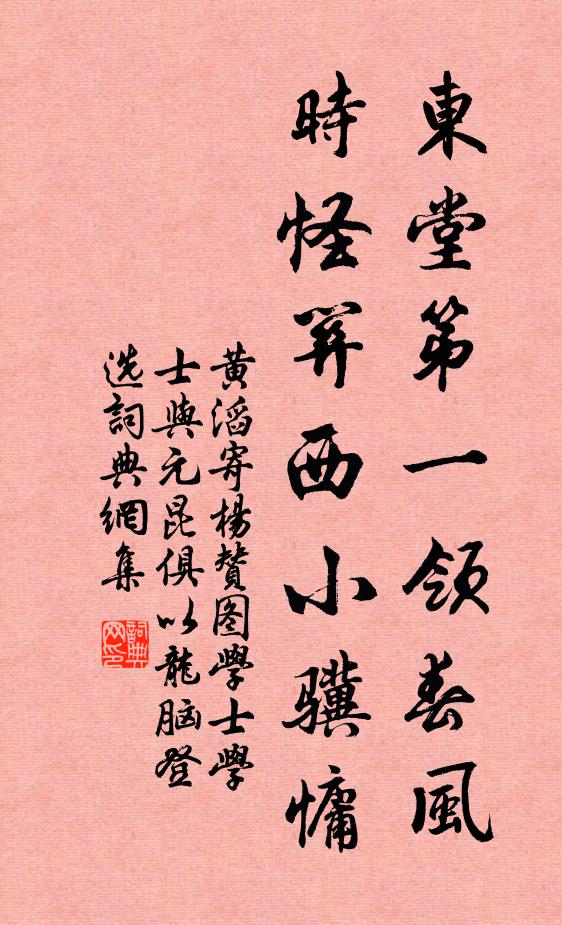 東堂第一領春風
時怪關西小驥慵
黃滔寄楊贊圖學士學
士與元昆俱以龍腦登
选詞典網集
詞典网印